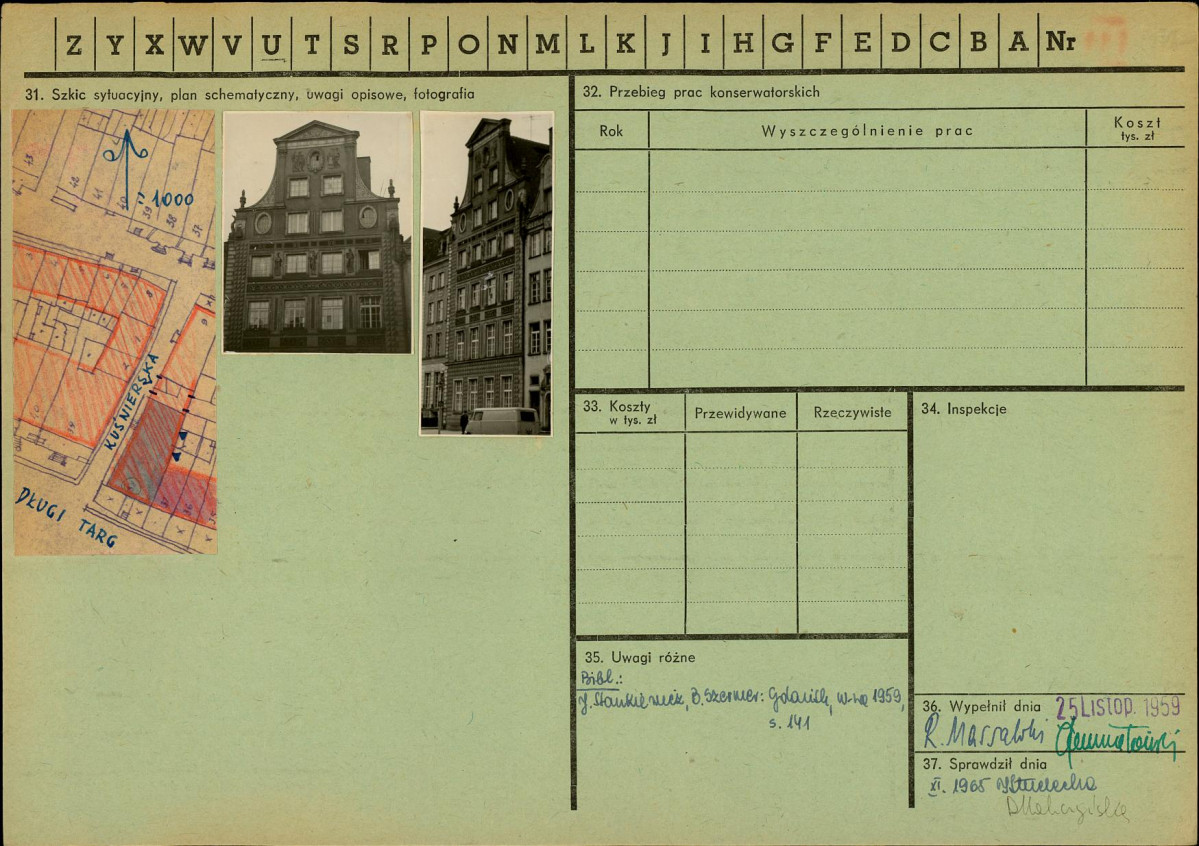 Z Y X W V U T S R P O N M L K J I H G F E D C B A Nr
31. Szkic sytuacyjny, plan schematyczny, uwagi opisowe, fotografia
1:1000
43
42
41
40
39
38
37
KUŚNIERSKA
DŁUGI TARG
32. Przebieg prac konserwatorskich
Rok
Wyszczególnienie prac
Koszt
tys. zł
33. Koszty
w tys. zł
Przewidywane
Rzeczywiste
34. Inspekcje
35. Uwagi różne
Bibl.:
J. Stankiewicz, B. Szermer: Gdańsk, W-wa 1959,
s. 141
36. Wypełnił dnia
25 LISTOP. 1959
R. Massalski
37. Sprawdził dnia
XI. 1965